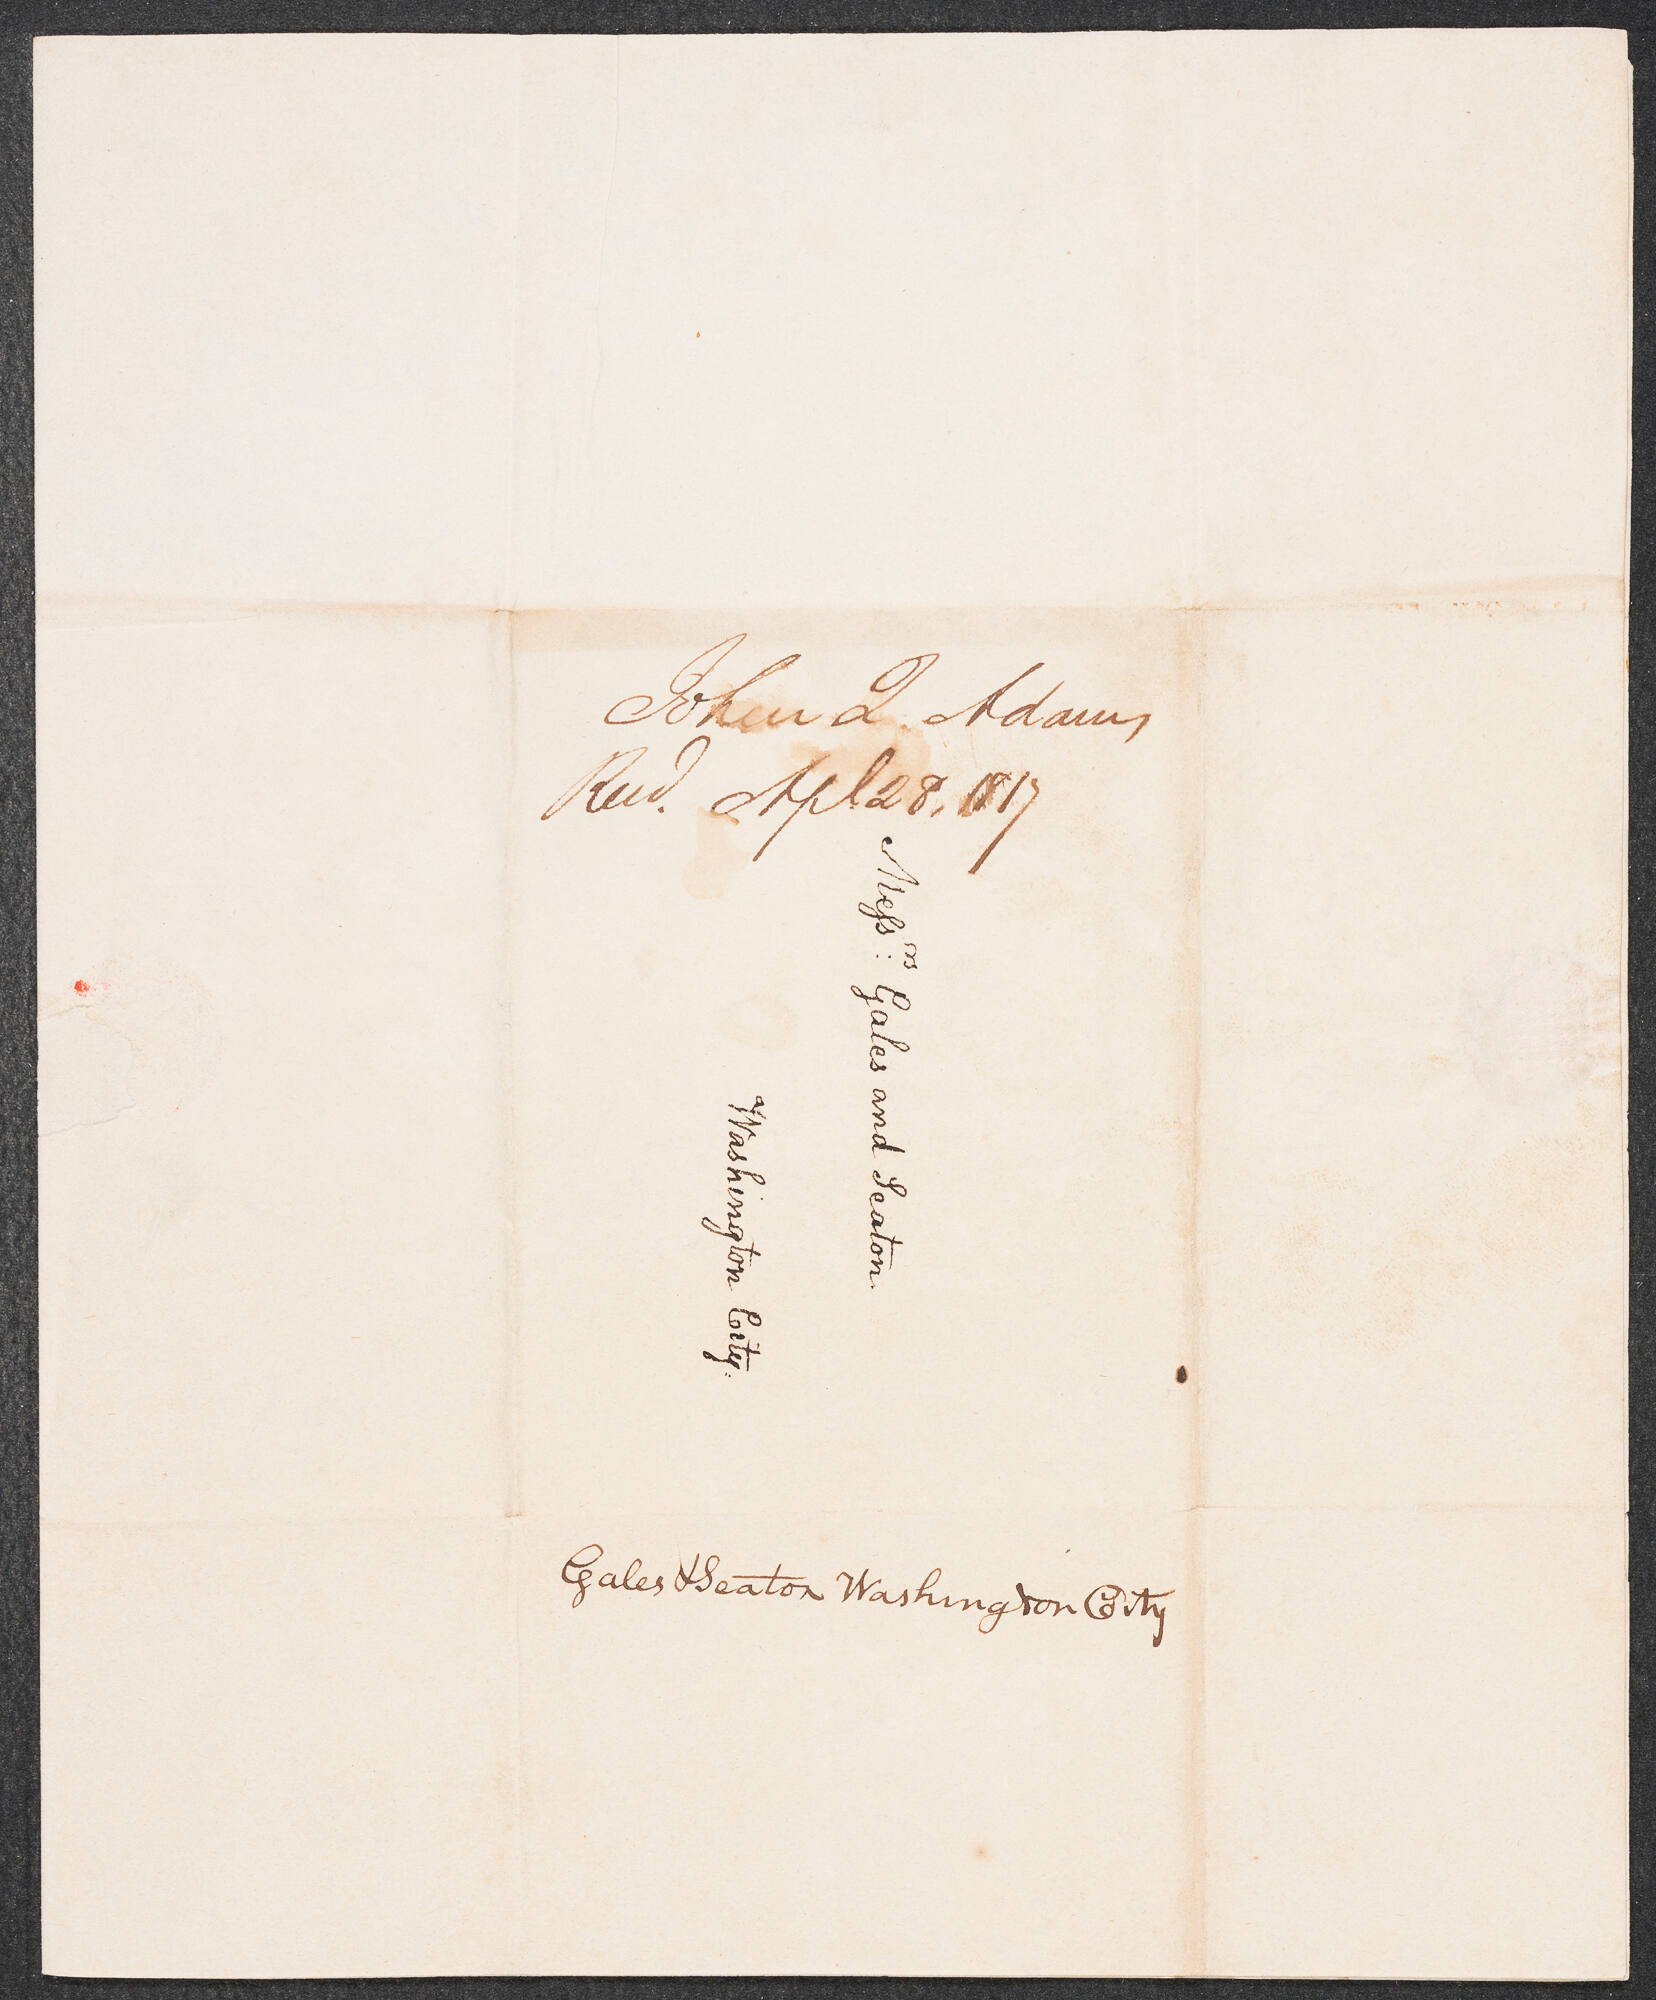 John Q. Adams
Recd. Apl. 28, 1817
Messrs: Gales and Seaton.
Washington City.
Gales & Seaton Washington City